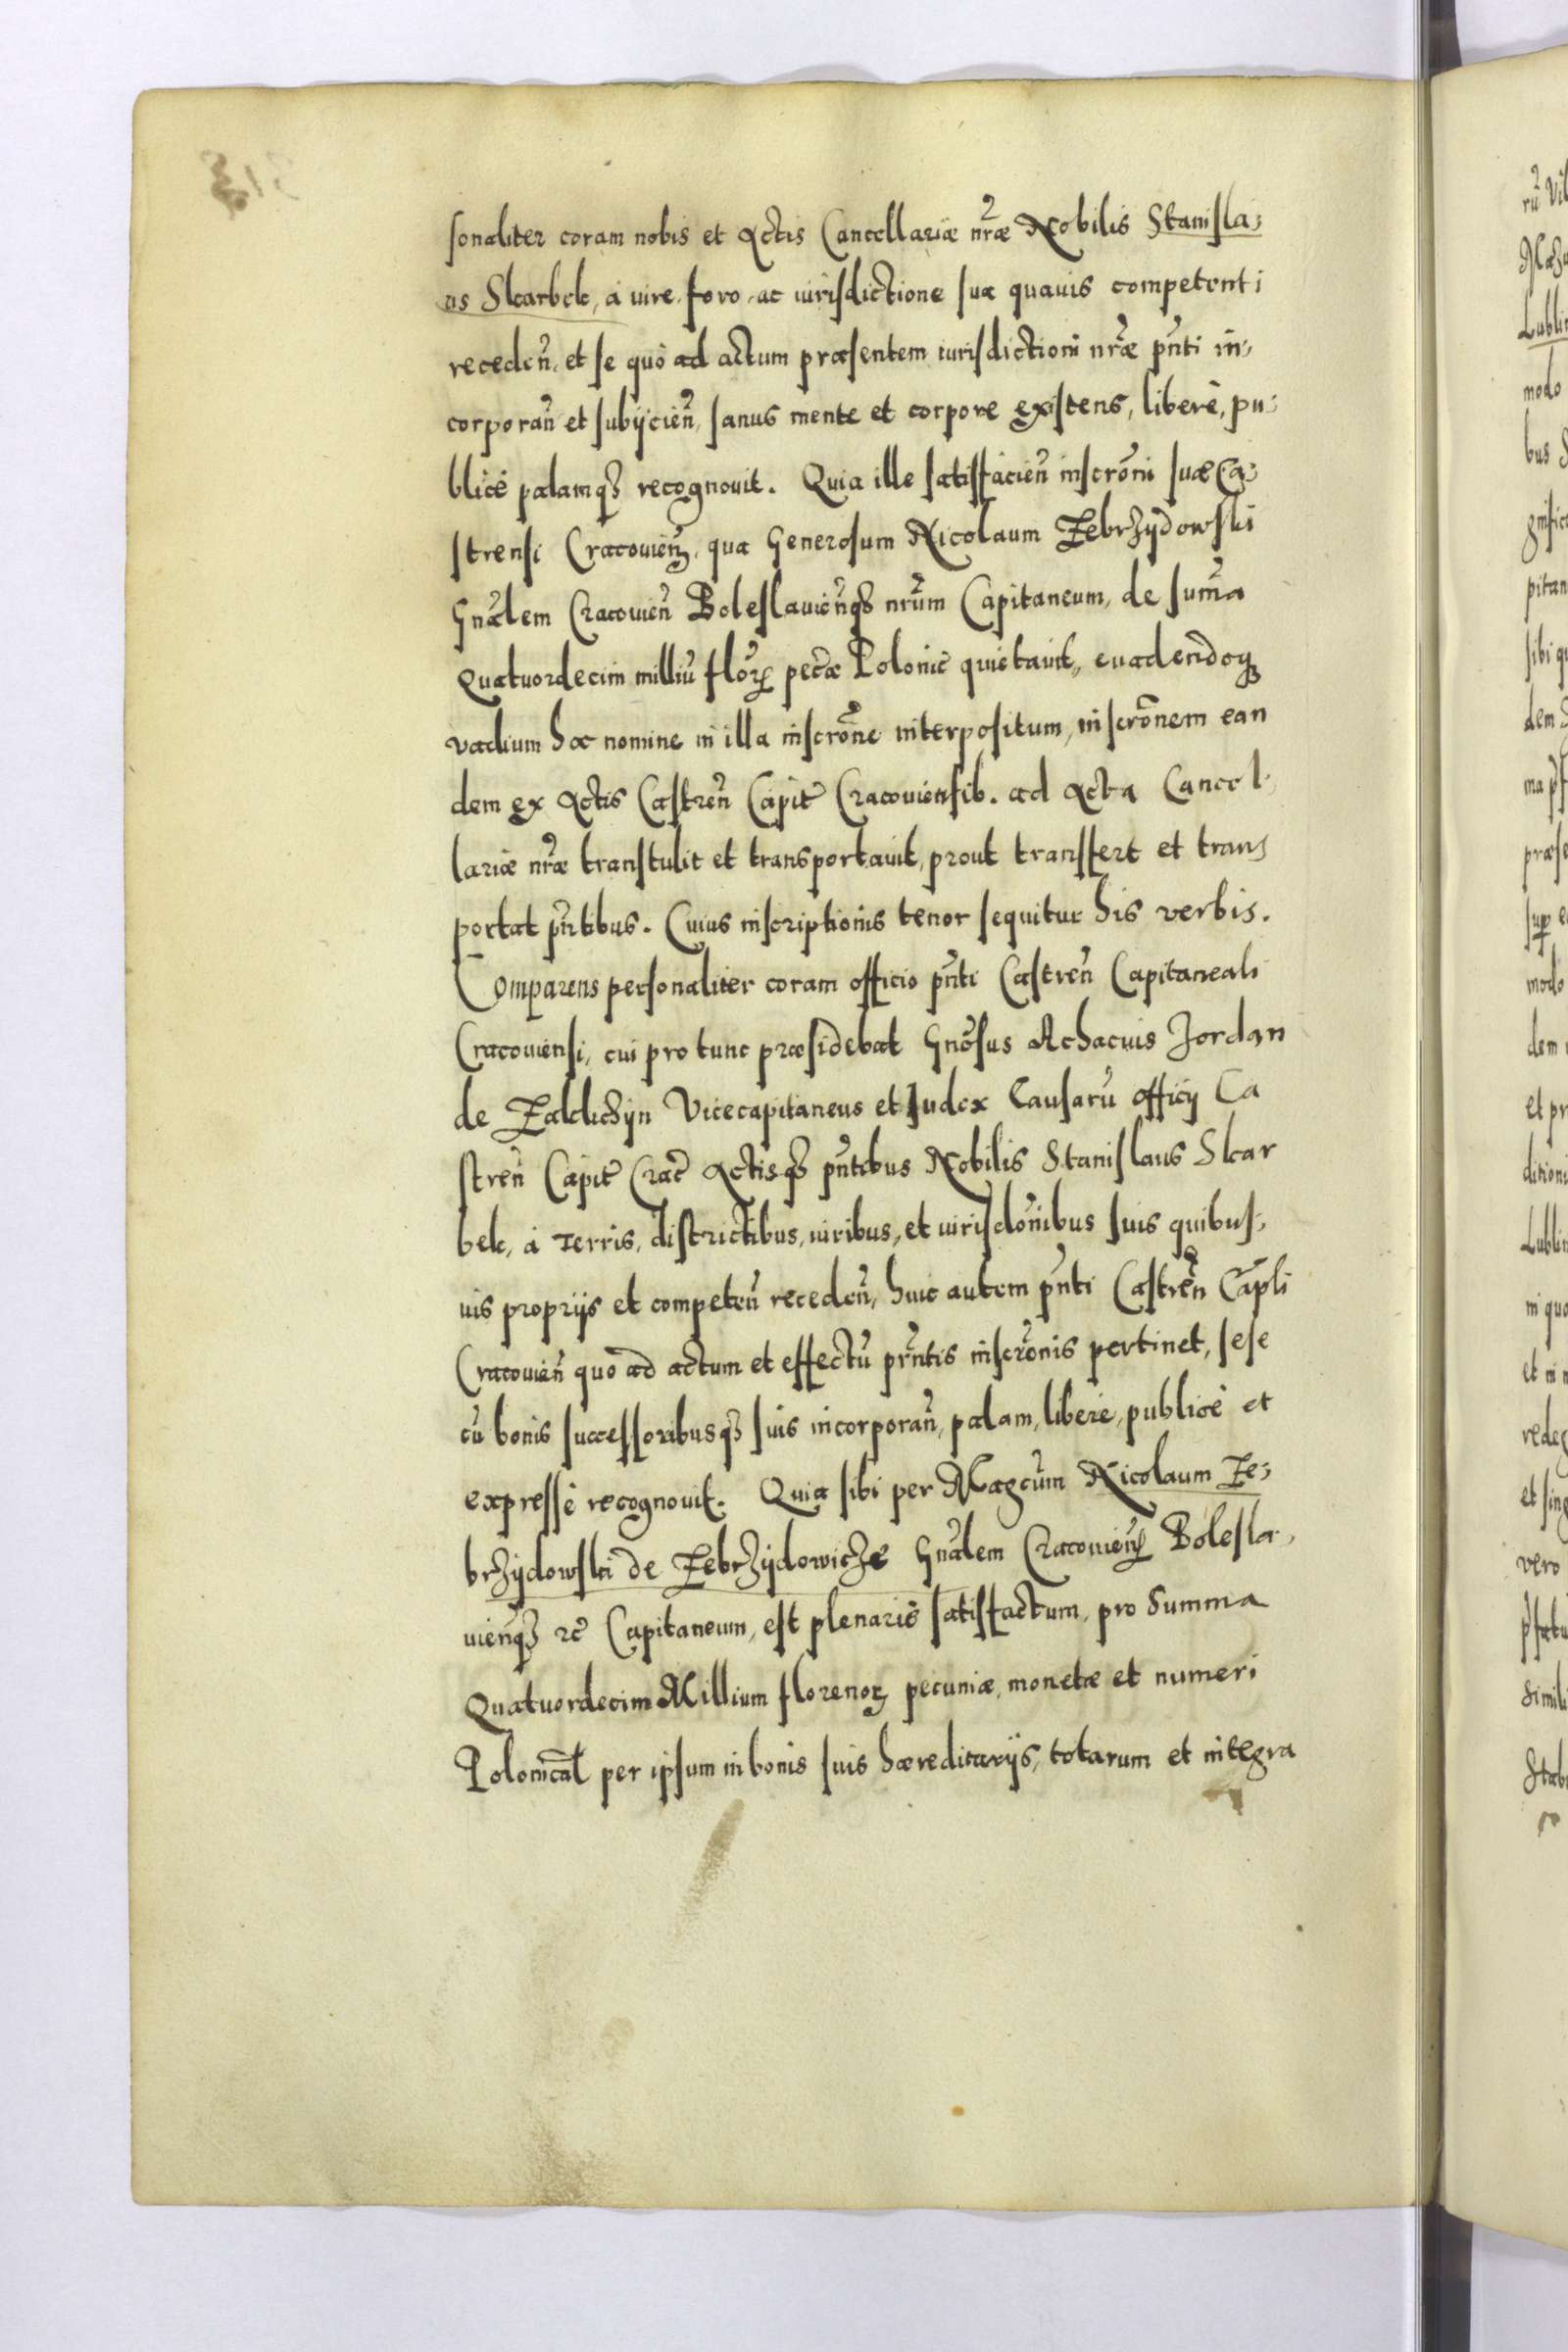 sonaliter coram nobis et Actis Cancellariæ nr̃æ Nobilis Stanisla,
us Skarbek, à iure, foro, ac iurisdictione sua quauis competenti
receden̄, et se quo ad actum præsentem iurisdictioni nr̃æ pn̄ti in,
corporan̄ et subijcien̄, sanus mente et corpore existens, liberè, pu,
blicè palamqꝫ recognouit. Quia ille satisfacien̄ inscrōni suæ Ca,
strensi Cracouien̄, qua Generosum Nicolaum Zebrzydowski
Gn̄alem Cracouien̄ Boleslauien̄qꝫ nrūm Capitaneum, de sum̄a
Quatuordecim milliū flor̄ꝝ pec̄æ Polonic̄ quietauit, euadendoqꝫ
vadium hoc nomine in illa inscrōne interpositum, inscrōnem ean
dem ex Actis Castren̄ Capit̄ Cracouiensib. ad Acta Cancel,
lariæ nr̃æ transtulit et transportauit, prout transfert et trans
portat pn̄tibus. Cuius inscriptionis tenor sequitur his verbis.
Comparens personaliter coram officio pn̄ti Castren̄ Capitaneali
Cracouiensi, cui pro tunc præsidebat Gnōsus Achacius Jordan
de Zaklichyn Vicecapitaneus et Iudex Causarū officij Ca
stren̄ Capit̄ Crac̄ Actisqꝫ pn̄tibus Nobilis Stanislaus Skar
bek, à Terris, districtibus, iuribus, et iurisdōnibus suis quibus,
uis proprijs et competen̄ receden̄, huic autem pn̄ti Castren̄ Cap̄li
Cracouien̄ quo ad actum et effectū pn̄tis inscrōnis pertinet, sese
cū bonis successoribusqꝫ suis incorporan̄, palam, liberè, publicè et
expressè recognouit. Quia sibi per Magcūm Nicolaum Ze,
brzydowski de Zebrzydowicze Gn̄alem Cracouien̄ Bolesla,
uien̄qꝫ ꝛc̄ Capitaneum, est plenariè satisfactum, pro Summa
Quatuordecim Millium florenoꝝ pecuniæ, monetæ et numeri
Polonical̄ per ipsum in bonis suis hæreditarijs, totarum et integra